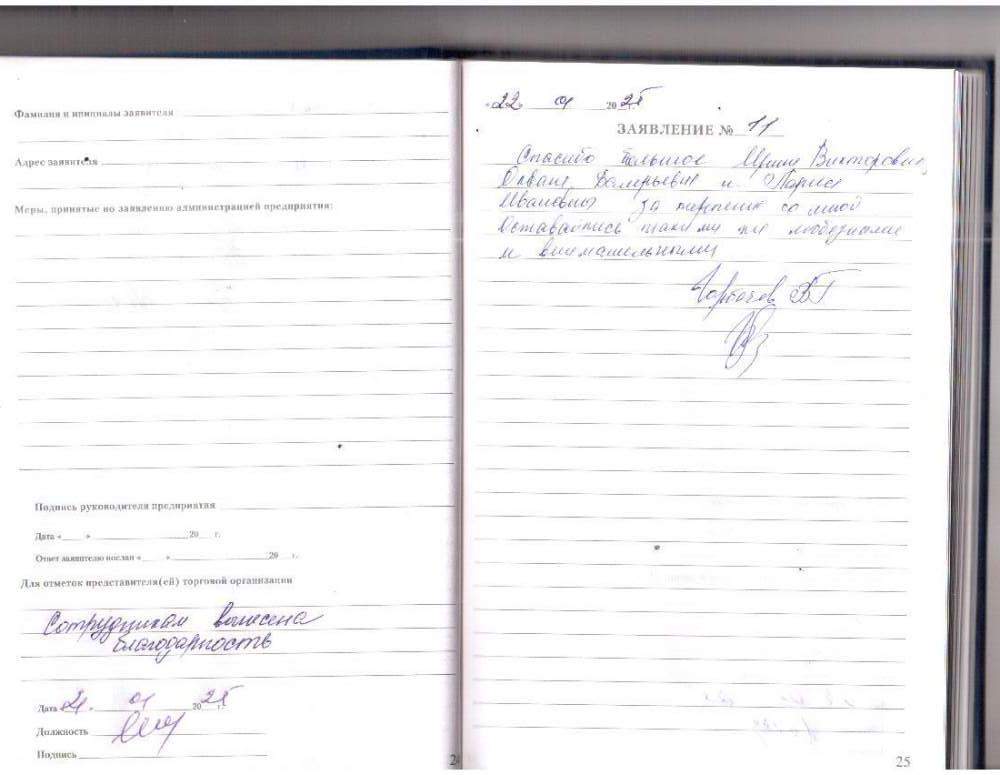 Фамилия и инициалы заявителя
Адрес заявителя
Меры, принятые по заявлению администрацией предприятия:
Подпись руководителя предприятия
Дата «___» ___ 20__ г.
Ответ заявителю послан «___» ___ 20__ г.
Для отметок представителя(ей) торговой организации
Сотрудникам вынесена
благодарность
Дата « » 01 2025 г.
Должность
Подпись
«22» 01 2025
ЗАЯВЛЕНИЕ № 11
Спасибо большое Ирине Викторовне,
Валерьевне и Ларисе
Ивановне за терпение со мной
Оставайтесь такими же любезными
и внимательными
Горбачев ВГ
25